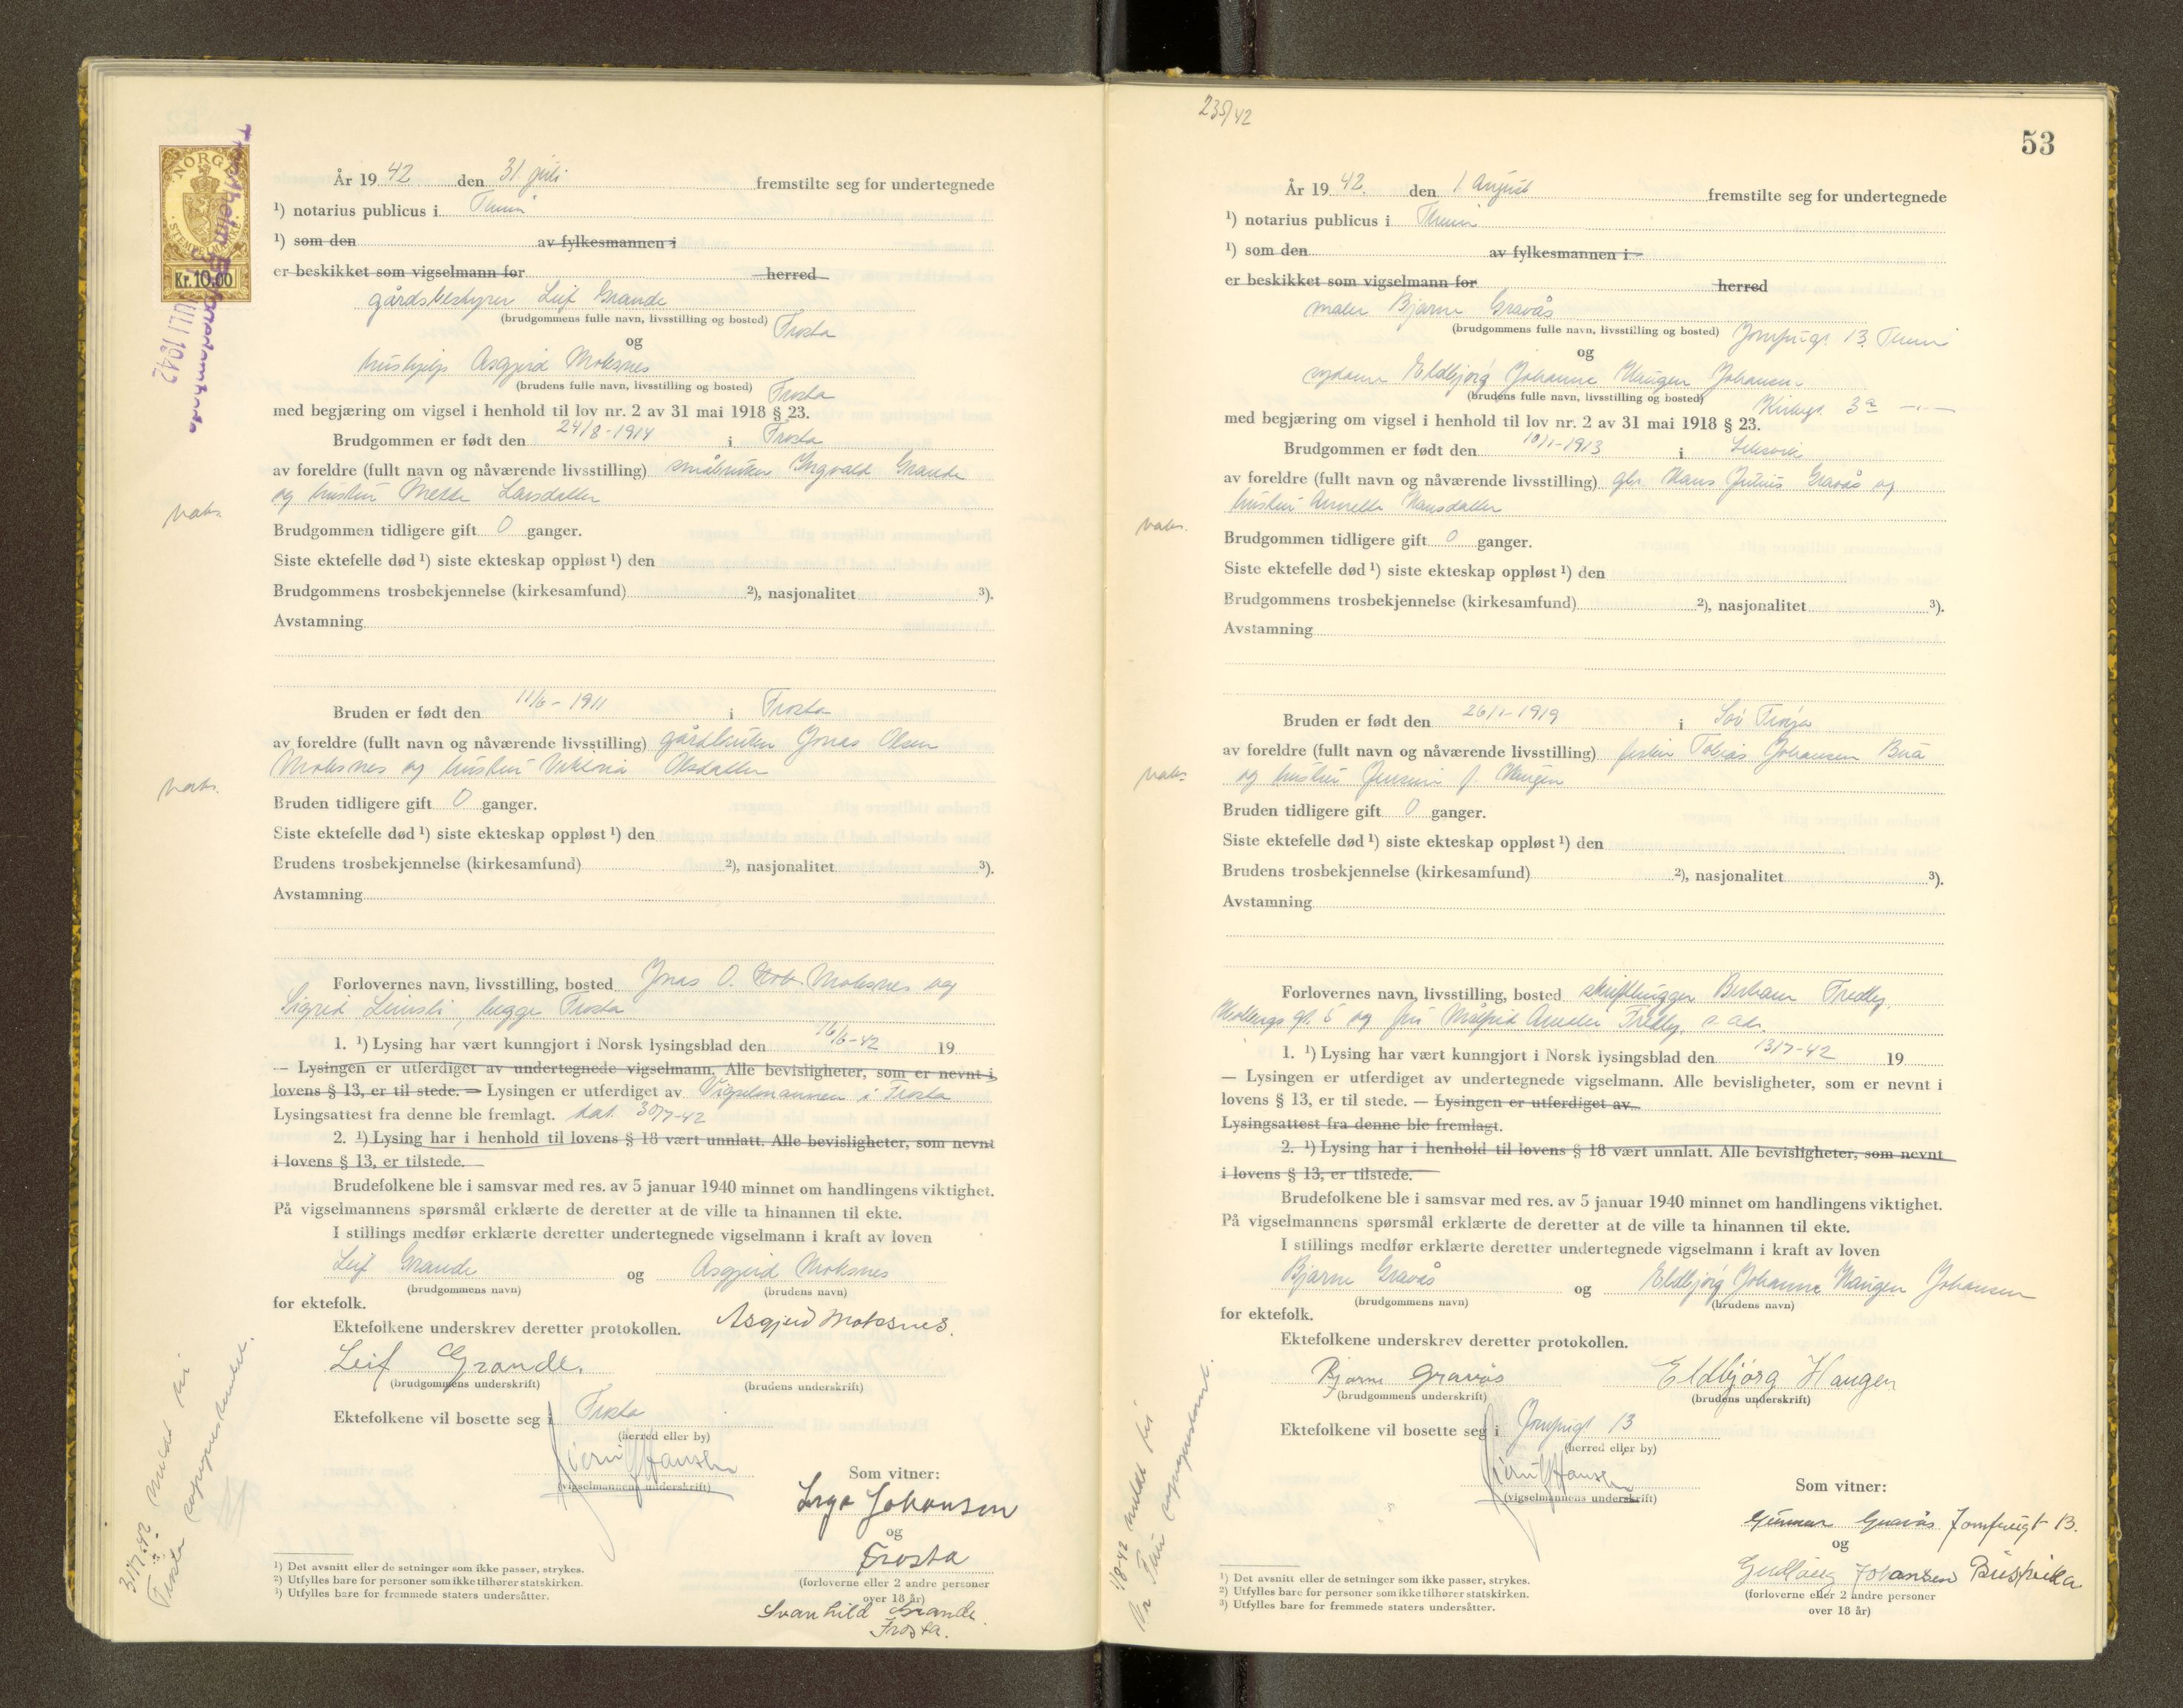 NORGE
STEMPELMERKE
Kr. 10.00
JULI 1942
År 19 42 den 31 juli fremstilte seg for undertegnede
¹) notarius publicus i
¹) som den av fylkesmannen i
er beskikket som vigselmann for herred
gårdsbestyrer Leif Grande
(brudgommens fulle navn, livsstilling og bosted) Frosta
og
hushjelp Asgjerd Moksnes
(brudens fulle navn, livsstilling og bosted) Frosta
med begjæring om vigsel i henhold til lov nr. 2 av 31 mai 1918 § 23.
Brudgommen er født den 24/8-1914 i Frosta
av foreldre (fullt navn og nåværende livsstilling) småbruker Ingvald Grande
og hustru Mette Larsdatter
vaks.
Brudgommen tidligere gift 0 ganger.
Siste ektefelle død ¹) siste ekteskap oppløst ¹) den
Brudgommens trosbekjennelse (kirkesamfund) ²), nasjonalitet ³).
Avstamning
Bruden er født den 11/6-1911 i Frosta
av foreldre (fullt navn og nåværende livsstilling) gårdbruker Jonas Olsen
Moksnes og hustru Viktoria Olsdatter
vaks.
Bruden tidligere gift 0 ganger.
Siste ektefelle død ¹) siste ekteskap oppløst ¹) den
Brudens trosbekjennelse (kirkesamfund) ²), nasjonalitet ³).
Avstamning
Forlovernes navn, livsstilling, bosted Jonas O. Moksnes og
Sigrid begge Frosta
1. ¹) Lysing har vært kunngjort i Norsk lysingsblad den 16/6-42 19
— Lysingen er utferdiget av undertegnede vigselmann. Alle bevisligheter, som er nevnt i
lovens § 13, er til stede. — Lysingen er utferdiget av Vigselmannen i Frosta
Lysingsattest fra denne ble fremlagt. dat. 30/7-42
2. ¹) Lysing har i henhold til lovens § 18 vært unnlatt. Alle bevisligheter, som nevnt
i lovens § 13, er tilstede.
Brudefolkene ble i samsvar med res. av 5 januar 1940 minnet om handlingens viktighet.
På vigselmannens spørsmål erklærte de deretter at de ville ta hinannen til ekte.
I stillings medfør erklærte deretter undertegnede vigselmann i kraft av loven
Leif Grande og Asgjerd Moksnes
(brudgommens navn) (brudens navn)
for ektefolk.
Ektefolkene underskrev deretter protokollen. Asgjerd Moksnes.
Leif Grande.
(brudgommens underskrift) (brudens underskrift)
Ektefolkene vil bosette seg i Frosta
(herred eller by)
Hansen
(vigselmannens underskrift)
Som vitner:
Inga Johansen
og
Frosta
(forloverne eller 2 andre personer
over 18 år)
Svanhild Grande.
Frosta.
¹) Det avsnitt eller de setninger som ikke passer, strykes.
²) Utfylles bare for personer som ikke tilhører statskirken.
³) Utfylles bare for fremmede staters undersåtter.
31/7-42 meldt til
Frosta sogneprestembet.
235/42
53
År 19 42. den 1 August fremstilte seg for undertegnede
¹) notarius publicus i
¹) som den av fylkesmannen i
er beskikket som vigselmann for herred
maler Bjarne Gravås
(brudgommens fulle navn, livsstilling og bosted) Jomfrugt. 13
og
sydame Eldbjørg Johanne Haugen Johansen
(brudens fulle navn, livsstilling og bosted) Kirkegt. 3a
med begjæring om vigsel i henhold til lov nr. 2 av 31 mai 1918 § 23.
Brudgommen er født den 10/1-1913 i Leksvik
av foreldre (fullt navn og nåværende livsstilling) gbr. Hans Julius Gravås og
hustru Annette Hansdatter
vaks.
Brudgommen tidligere gift 0 ganger.
Siste ektefelle død ¹) siste ekteskap oppløst ¹) den
Brudgommens trosbekjennelse (kirkesamfund) ²), nasjonalitet ³).
Avstamning
Bruden er født den 26/1-1919 i Sør Frøya
av foreldre (fullt navn og nåværende livsstilling) fisker Tobias Johansen
og hustru J. Haugen
vaks.
Bruden tidligere gift 0 ganger.
Siste ektefelle død ¹) siste ekteskap oppløst ¹) den
Brudens trosbekjennelse (kirkesamfund) ²), nasjonalitet ³).
Avstamning
Forlovernes navn, livsstilling, bosted skrifthugger Fredly,
og fru Målfrid Fredly, s. adr.
1. ¹) Lysing har vært kunngjort i Norsk lysingsblad den 13/7-42 19
— Lysingen er utferdiget av undertegnede vigselmann. Alle bevisligheter, som er nevnt i
lovens § 13, er til stede. — Lysingen er utferdiget av
Lysingsattest fra denne ble fremlagt.
2. ¹) Lysing har i henhold til lovens § 18 vært unnlatt. Alle bevisligheter, som nevnt
i lovens § 13, er tilstede.
Brudefolkene ble i samsvar med res. av 5 januar 1940 minnet om handlingens viktighet.
På vigselmannens spørsmål erklærte de deretter at de ville ta hinannen til ekte.
I stillings medfør erklærte deretter undertegnede vigselmann i kraft av loven
Bjarne Gravås og Eldbjørg Johanne Haugen Johansen
(brudgommens navn) (brudens navn)
for ektefolk.
Ektefolkene underskrev deretter protokollen.
Bjarne Gravås Eldbjørg Haugen
(brudgommens underskrift) (brudens underskrift)
Ektefolkene vil bosette seg i Jomfrugt 13
(herred eller by)
Hansen
(vigselmannens underskrift)
Som vitner:
Gunnar Gravås Jomfrugt 13.
og
Johansen
(forloverne eller 2 andre personer
over 18 år)
¹) Det avsnitt eller de setninger som ikke passer, strykes.
²) Utfylles bare for personer som ikke tilhører statskirken.
³) Utfylles bare for fremmede staters undersåtter.
1/8-42 meldt til